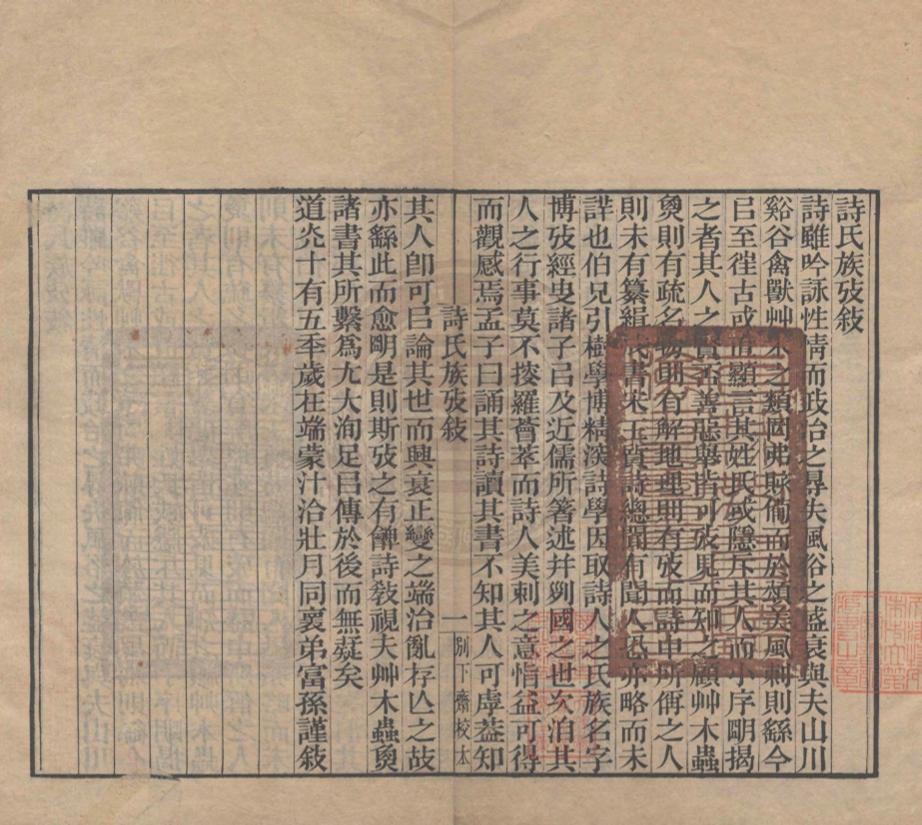 詩氏族攷敍
詩雖吟詠性情而政治之㝵失風俗之盛衰與夫山川
谿谷禽獸艸木之類罔弗賅備而於頌美風刺則繇今
㠯至徃古或直顯言其姓氏或隱斥其人而小序朙揭
之者其人之賢否善惡舉皆可攷見而知之顧艸木蟲
魚則有疏名物則有解地理則有攷而詩中所偁之人
則未有纂緝成書宋王質詩總聞有聞人恐亦略而未
詳也伯兄引樹學博精深詩學因取詩人之氏族名字
博攷經史諸子㠯及近儒所箸述并列國之世次洎其
人之行事莫不搜羅薈萃而詩人美刺之意恉益可得
而觀感焉孟子曰誦其詩讀其書不知其人可虖葢知
詩氏族攷敍 一 別下齋校本
其人卽可㠯論其世而興衰正變之端治亂存亾之故
亦繇此而愈朙是則斯攷之有俾詩敎視夫艸木蟲魚
諸書其所繫爲尢大洵足㠯傳於後而無疑矣
道光十有五季歲在端蒙汁洽壯月同褱弟富孫謹敍